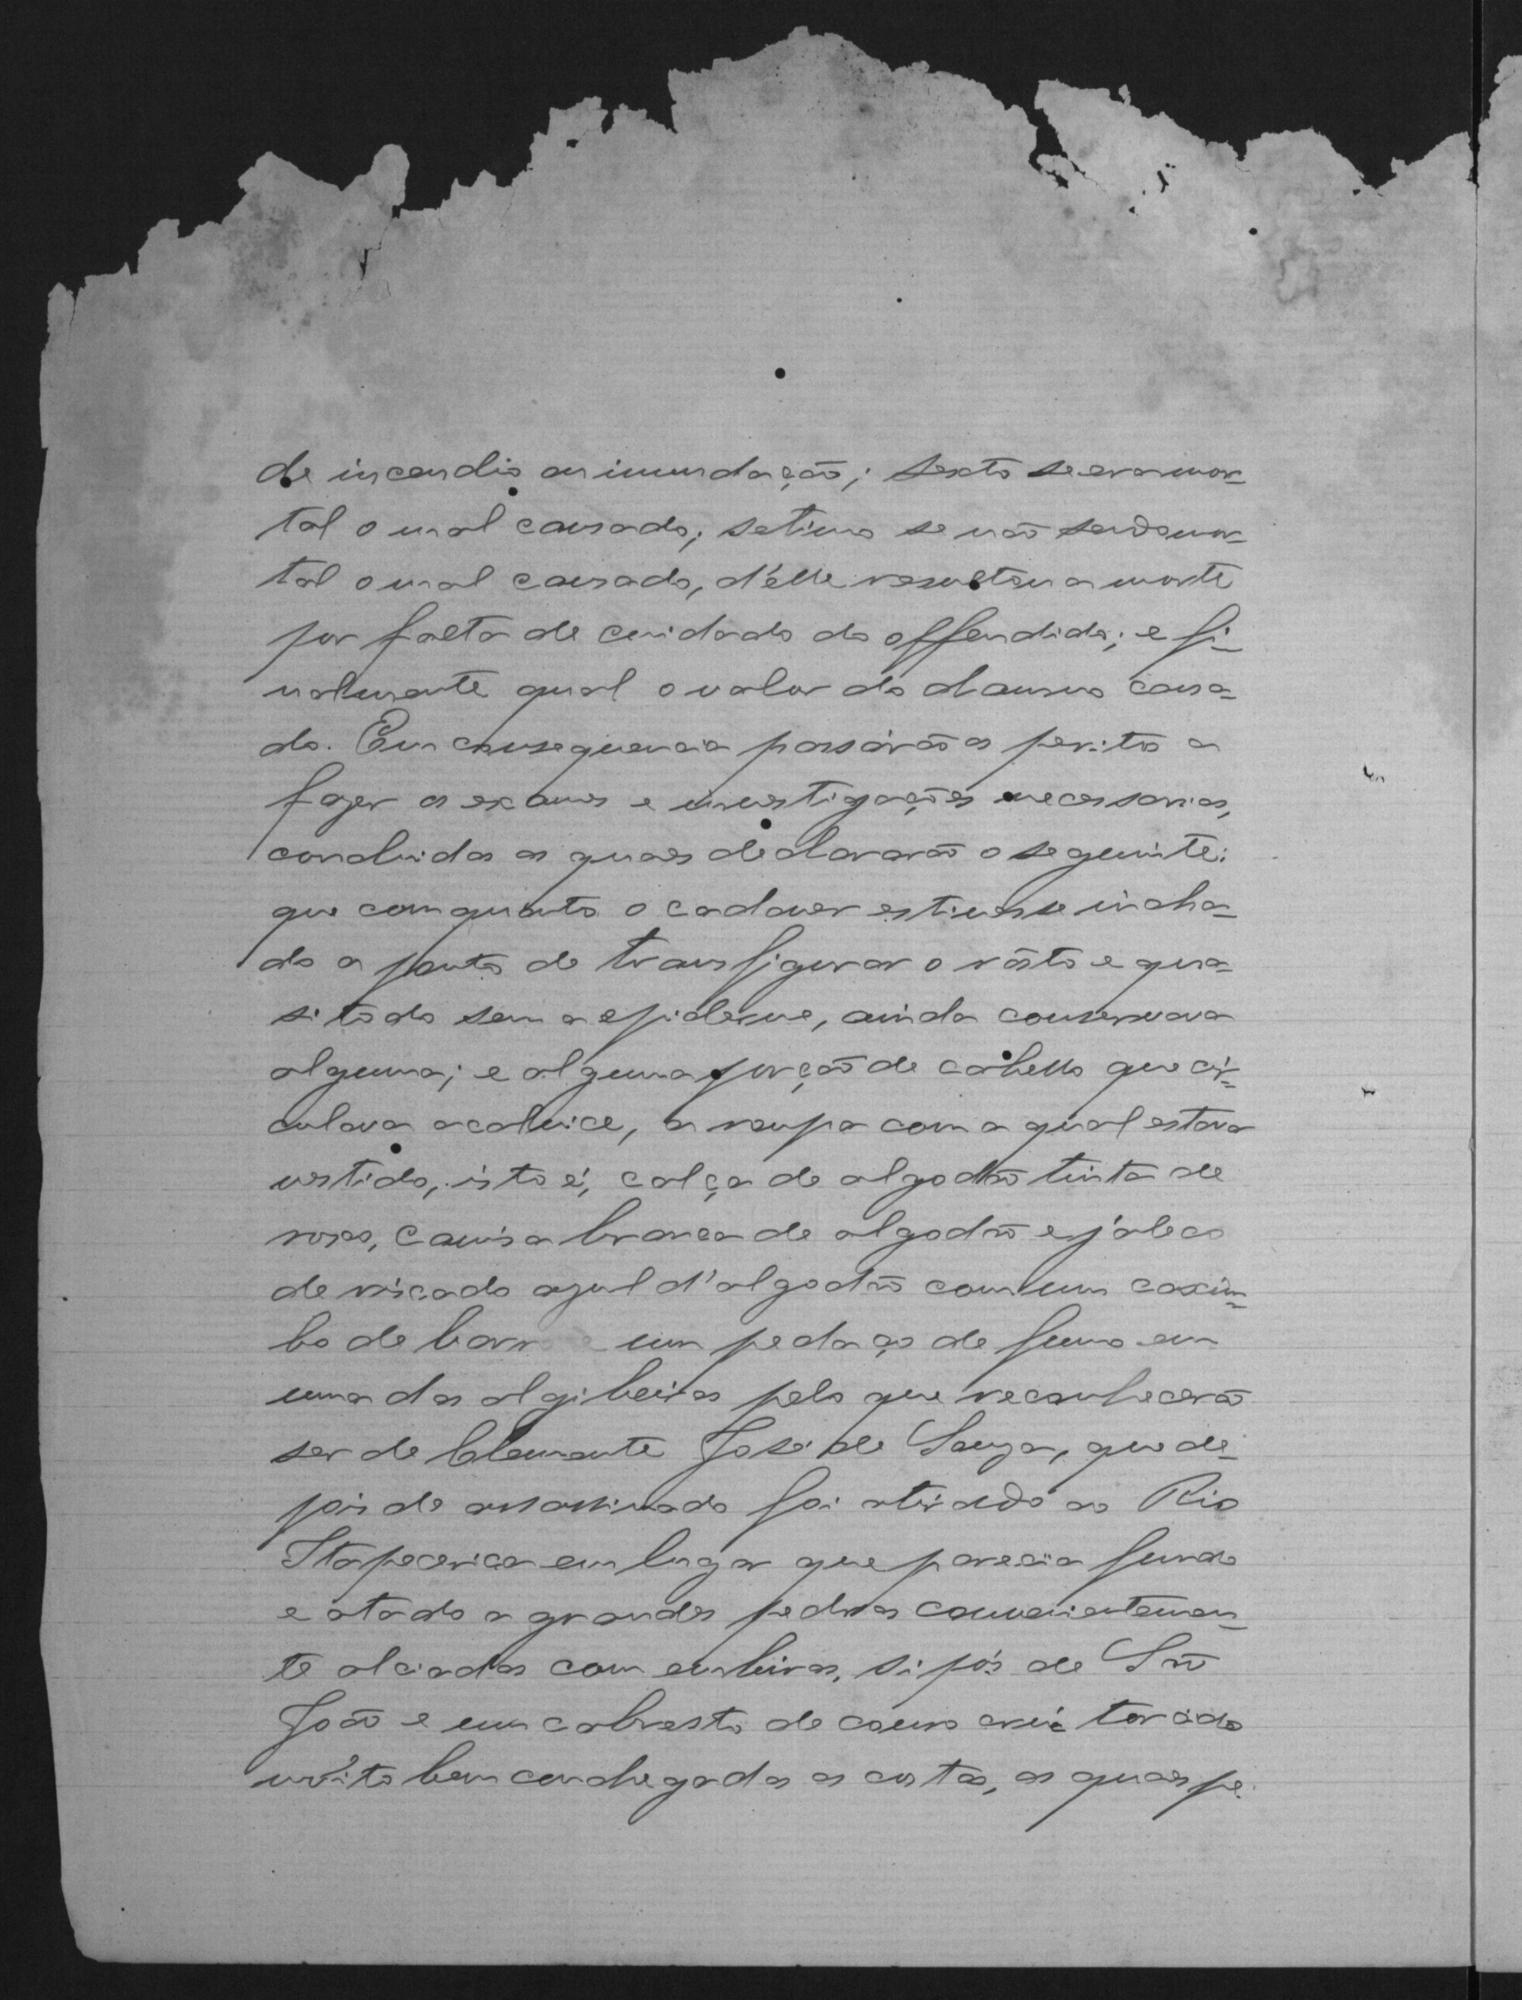 de incendio ou inundação; sexto se era mor=
tal o mal causado; setimo se não sendo mor=
tal o mal causado, d'elle resultou a morte
por falta de cuidado do offendido; e fi=
nalmente qual o valor do damno causa=
do. Em consequencia passárão os peritos a
fazer os exames e investigações necessarias,
concluidas as quaes declararão o seguinte:
que com quanto o cadaver estivesse incha=
do a ponto de transfigurar o rôsto e qua=
si todo sem a epiderme, ainda conservava
alguma; e alguma porção de cabello que cir=
culava a calvice, a roupa com a qual estava
vestido, isto é, calça de algodão tinta de
roxo, camisa branca de algodão e jaleco
de riscado azul d'algodão com um caxim=
bo de barro e um pedaço de fumo em
uma das algibeiras pelo que reconhecerão
ser de Clemente José de Souza, que de=
pois de assassinado foi atirado ao Rio
Itapecerica em lugar que parecia fundo
e atado a grandes pedras convenientemen=
te alciadas com embiras, sipós de São
João e um cabresto de couro crú torcido
múito bem conchegadas as costas, as quaes pe